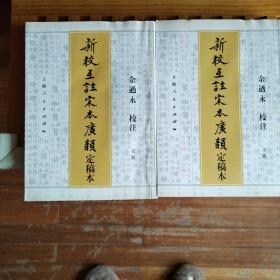 新校互註宋本廣韻定稿本
余迺永 校注
上海人民出版社
新校互註宋本廣韻定稿本
余迺永 校注
上海人民出版社